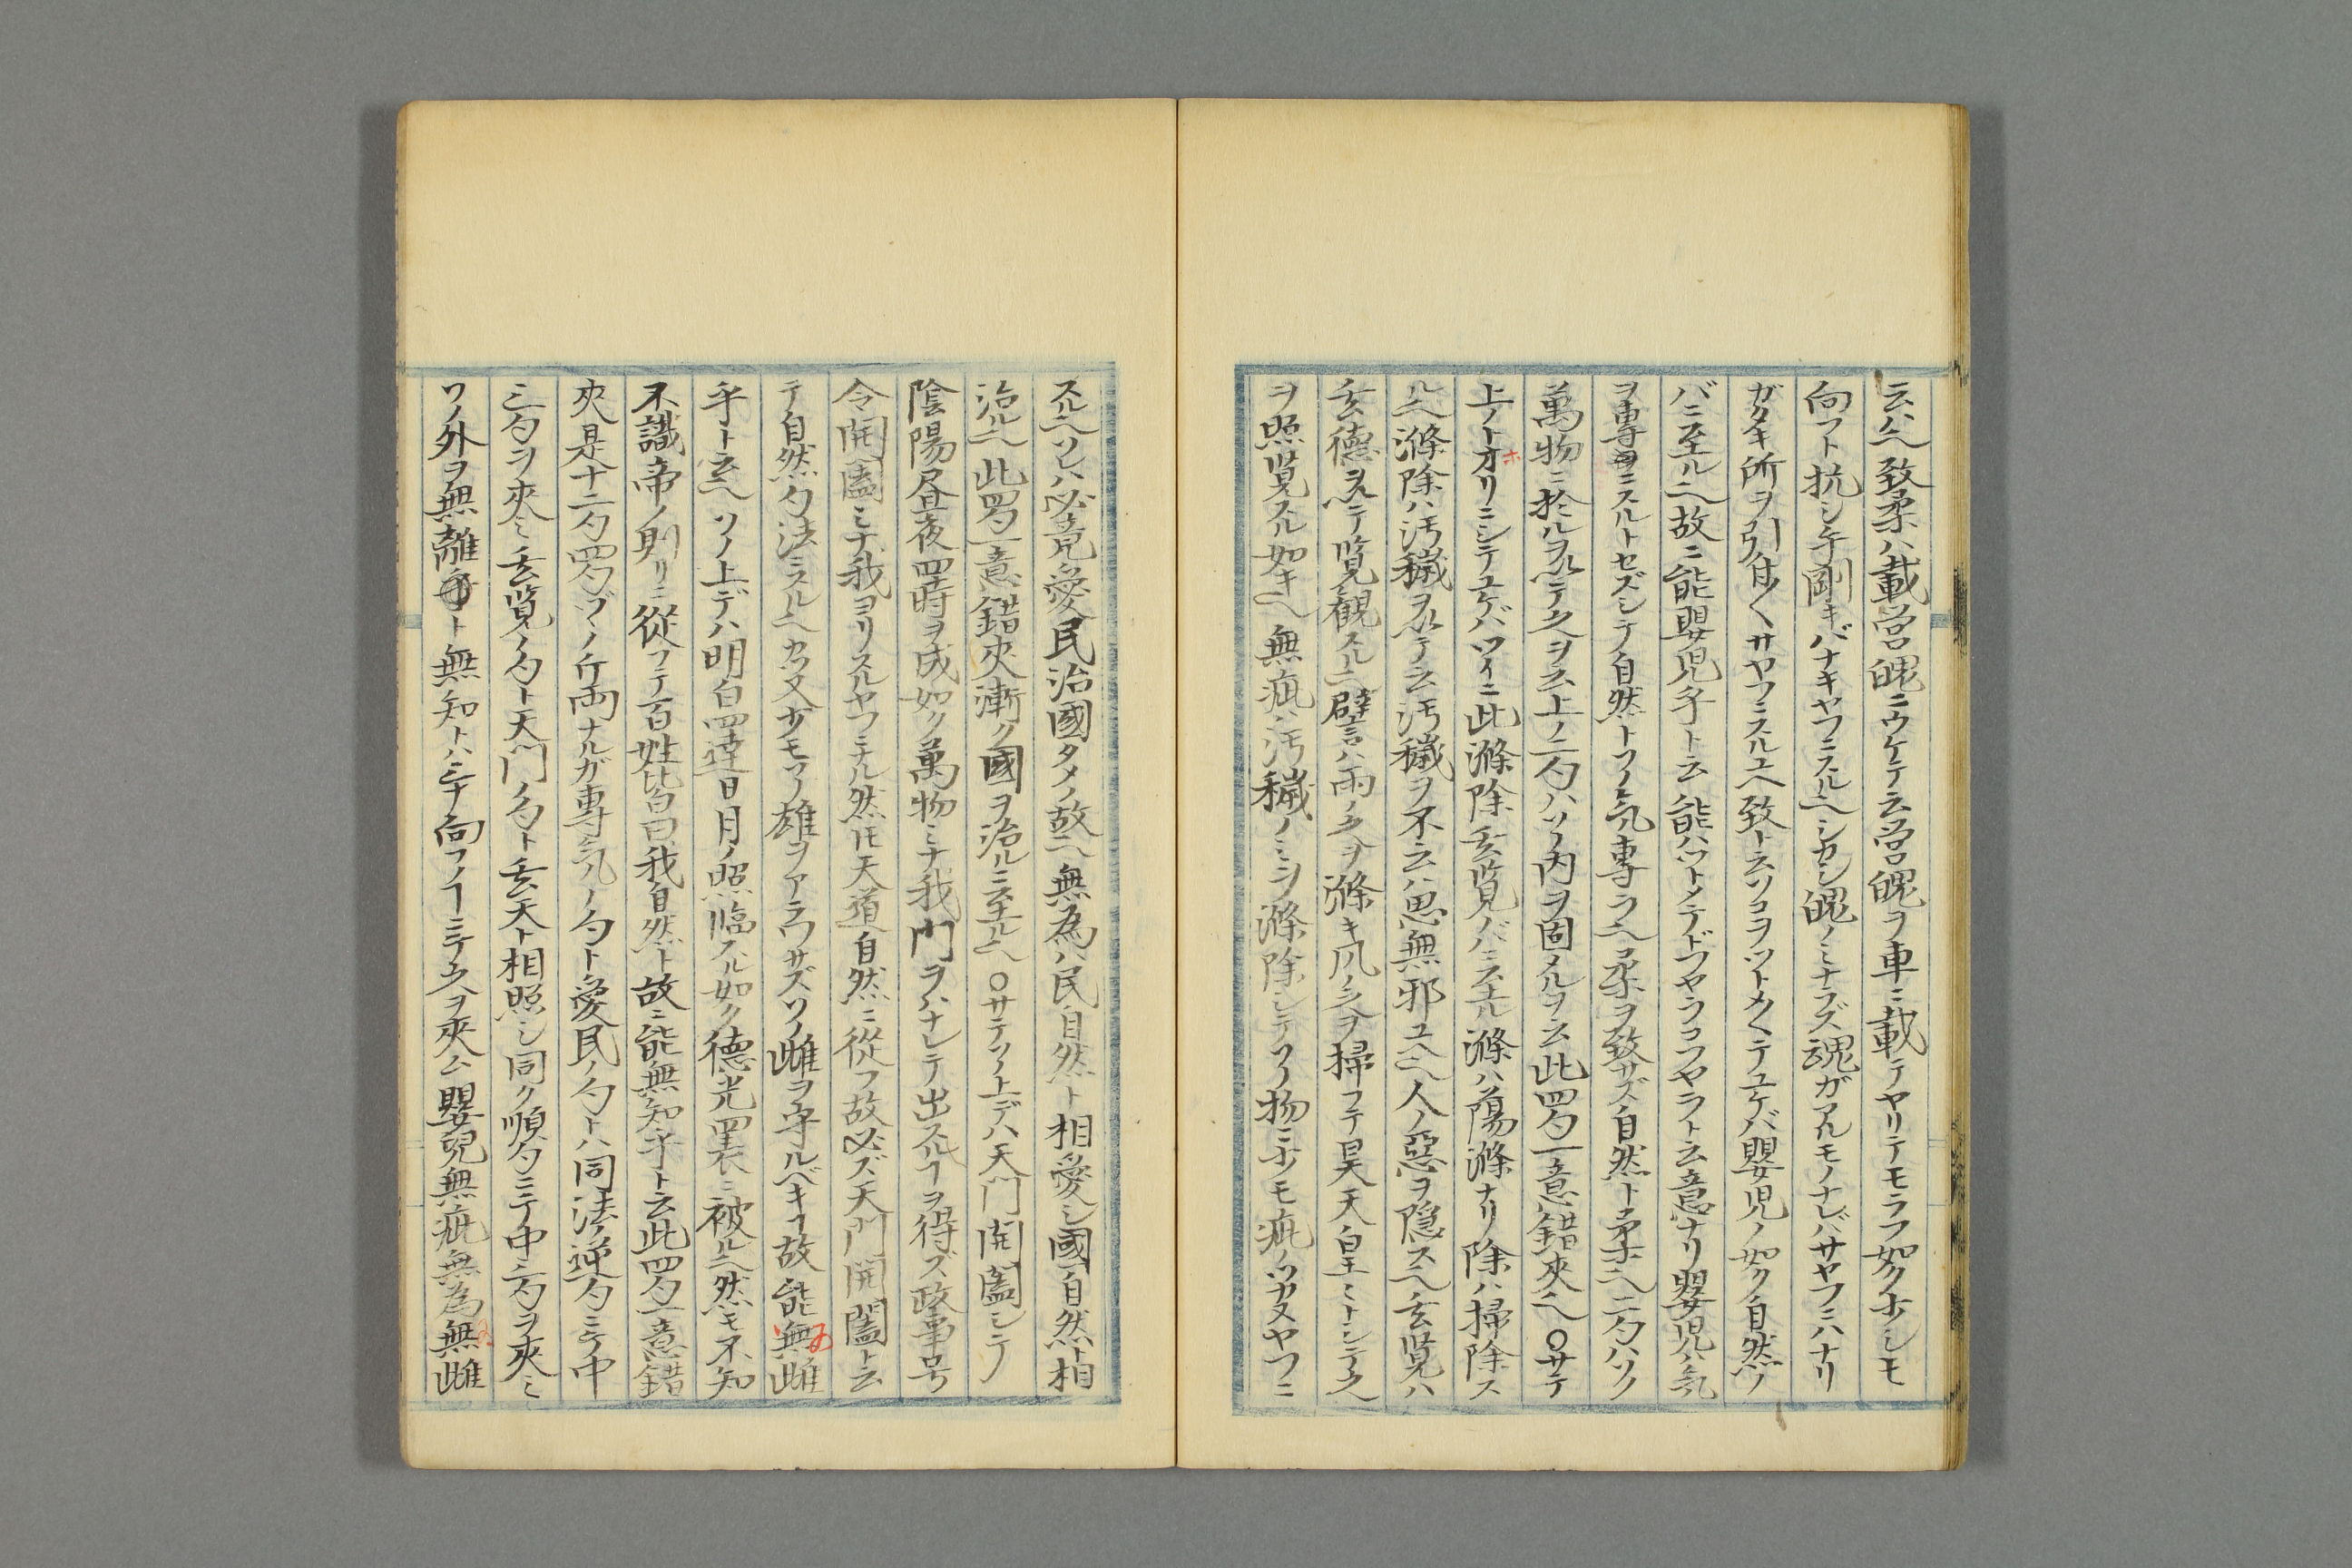 云ハ也致柔ハ載営魄ニウケテ云営魄ヲ車ニ載テヤリテモラフ如ク少シモ
向フト抗シ牟剛キバナキヤフニスル也シカシ魄ノミナラズ魂ガアルモノナレバサヤフニハナリ
ガタキ所ヲ引付ククサヤフニスルユヘ致ト云ソコヲツトメクテユケバ嬰児ノ如ク自然ノ
バニ至ル也故ニ能嬰児乎ト云能ハツトメテドウヤラコフヤラト云意ナリ嬰児ハ気
ヲ専ラニスルトセズシテ自然トソノ気専ラ也柔ヲ致サズ自然ト柔ナ也二句ハソノ
萬物ニ於ルヲ以テ之ヲ云上ノ二句ハソノ内ヲ固メルヲ云此四句一意錯夾也〇サテ
上ノトオリニシテユケバツイニ此滌除玄覧ノバニ至ル滌ハ蕩滌ナリ除ハ掃除ス
ル也滌除ハ汚穢ヲ以テ云汚穢ヲ不云ハ思無邪ユヘ也人ノ惡ヲ隠ス也玄覧ハ
玄德ヲ以テ覧觀スル也譬ハ雨ノ之ヲ滌キ風ノ之ヲ掃フテ昊天皇ミトシテ之
ヲ照覧スル如キ也無疵ハ汚穢ノミヲ滌除シテソノ物ニ少モ疵ノツカヌヤフニ
スル也ソレハ必竟愛民治國タメノ故也無為ハ民自然ト相愛シ國自然ト相
治ル也此四句一意錯夾漸ク國ヲ治ルニ至ル也〇サテソノ上デハ天門開闔シテ
陰陽昼夜四時ヲ成如ク萬物ミナ我門ヲハナレテ出スルヿヲ得ズ政事号
令開闔ミナ我ヨリスルヤフニナル然𪜈天道自然ニ從フ故必ズ天門開闔ト云
テ自然ノ法ニスル也カツ又少モソノ雄ヲアラワサズソノ雌ヲ守ルベキヿ故能無雌
乎ト云也ソノ上デハ明白四達日月ノ照臨スル如ク德光四表ニ被ル也然モ不知
不識帝ノ則リニ從フテ百姓皆曰我自然ト故ニ能無知乎ト云此四句一意錯
夾是十二句四句ヅヽノ斤両ナルガ専気ノ句ト愛民ノ句トハ同法ノ逆句ニテ中
二句ヲ夾ミ玄覧ノ句ト天門ノ句ト玄天ト相照シ同ク順句ニテ中二句ヲ夾ミ
ソノ外ヲ無離乎ト無知トハミナ向フノヿニテ之ヲ夾ム嬰兒無疵無為無雌